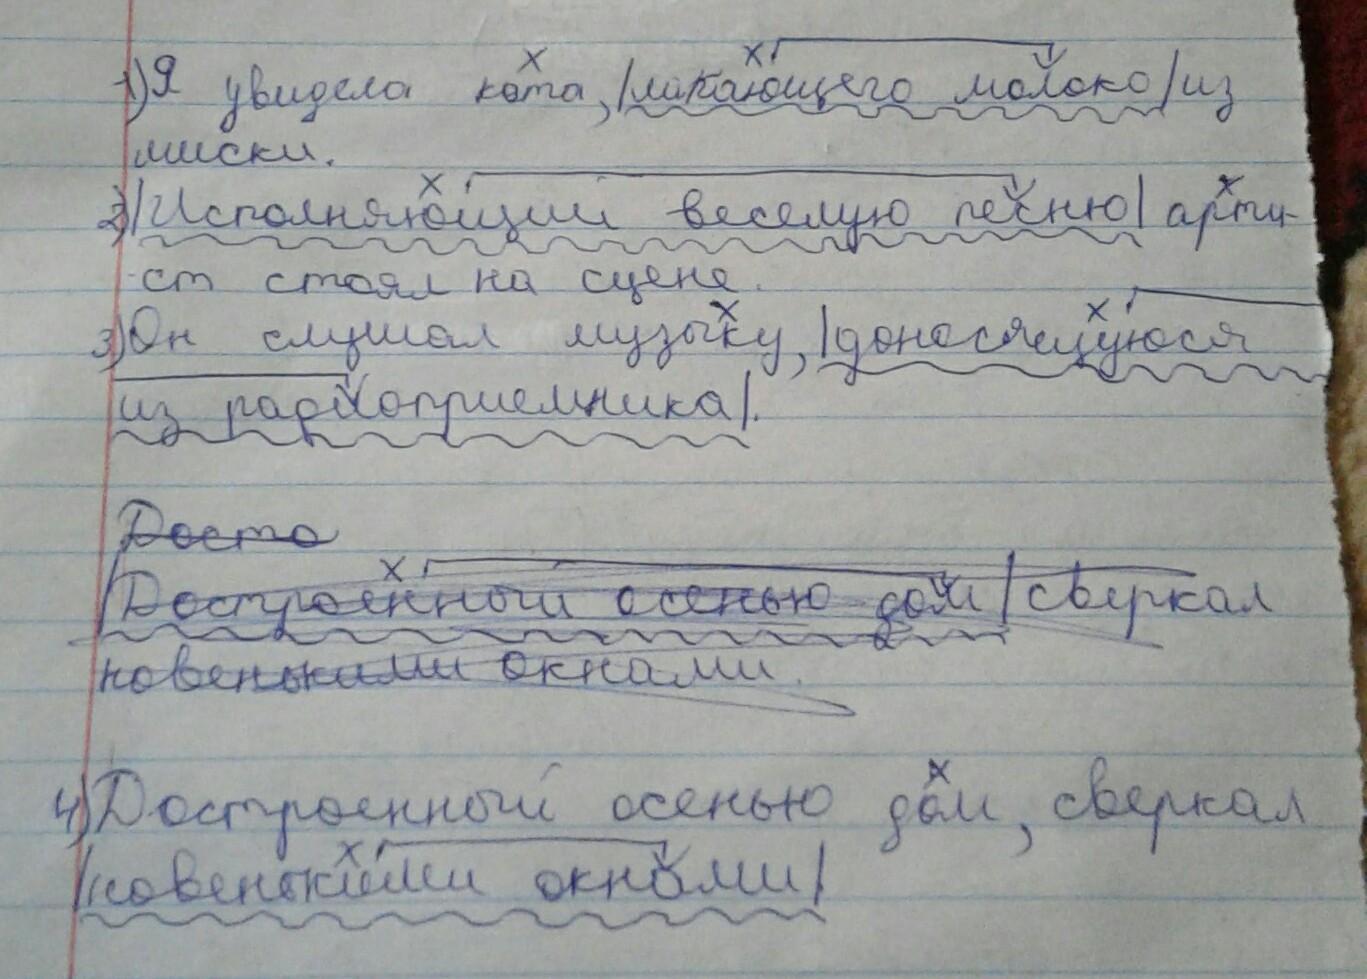 1) Я увидела кота, |лакающего молоко| из
миски.
2) |Исполняющий веселую песню| арти-
ст стоял на сцене.
3) Он слушал музыку, |доносящуюся
из радиоприемника|.
Доста
|Достроенный осенью дом| сверкал
новенькими окнами.
4) Достроенный осенью дом, сверкал
|новенькими окнами|